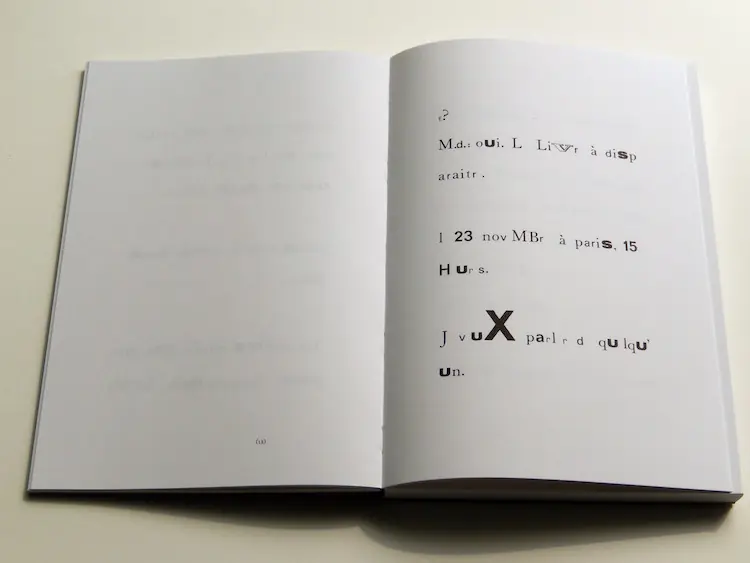 ?
M.d.: oui. L Livr à disp
araitr .
l 23 nov MBr à paris, 15
H urs.
J v uX parl r d qu lqu'
un.